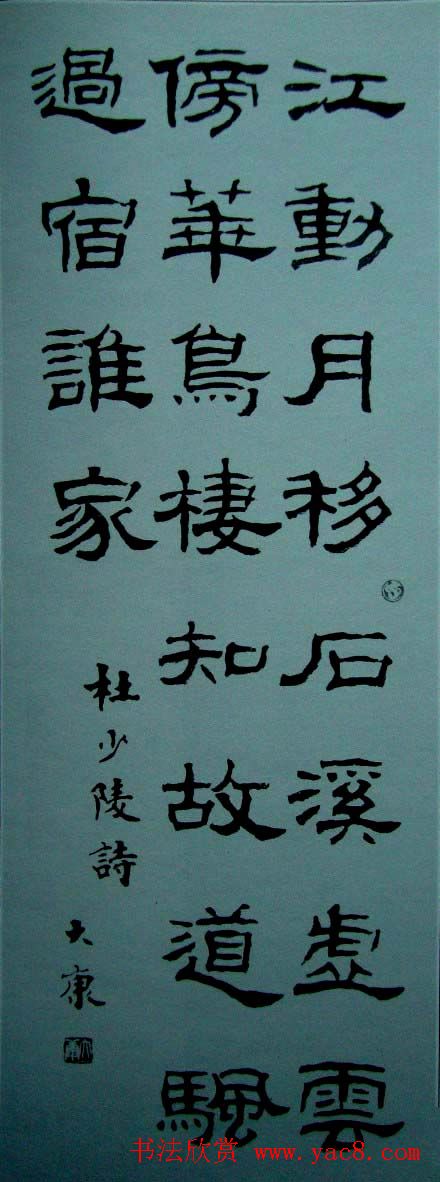 江動月移石溪虚雲
傍華鳥棲知故道颿
過宿誰家
杜少陵詩
大康
书法欣赏 www.yac8.com